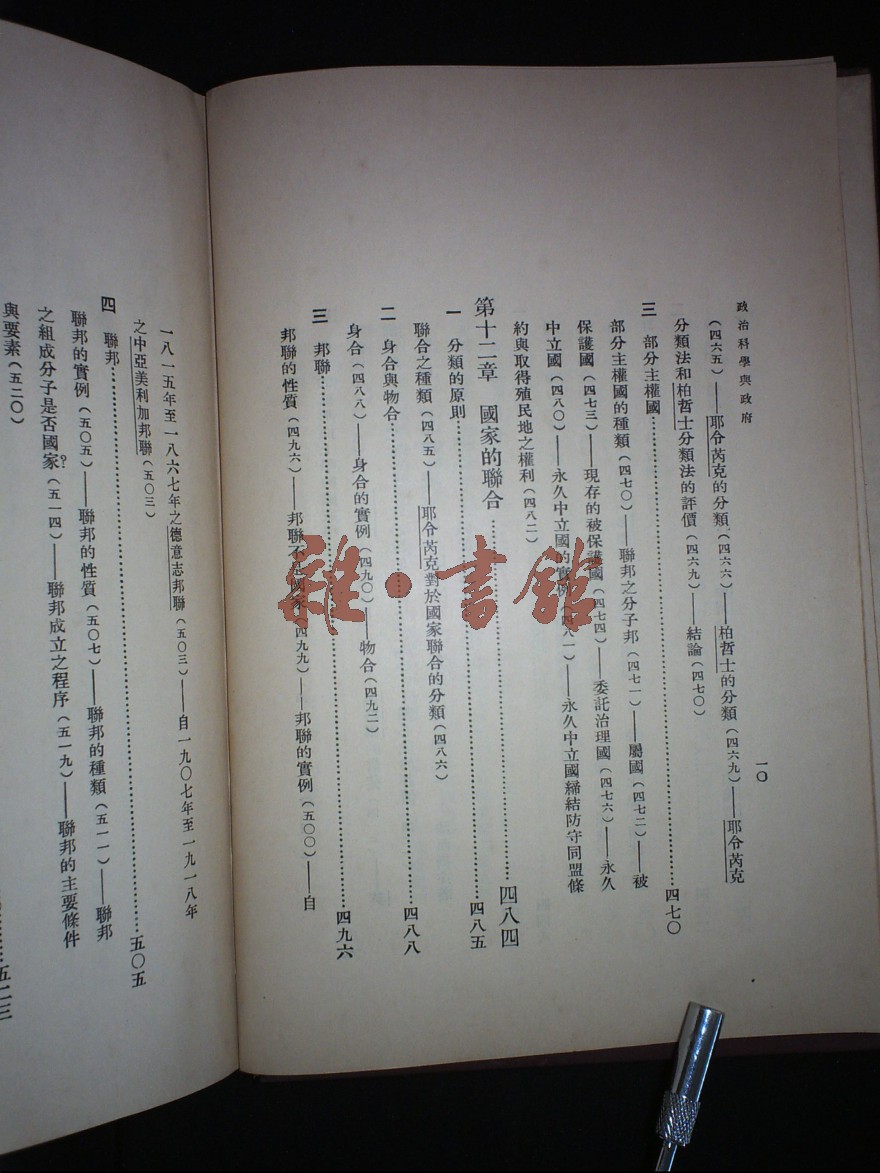 政治科學與政府
一〇
(四六五)——耶令芮克的分類(四六六)——柏哲士的分類(四六九)——耶令芮克
分類法和柏哲士分類法的評價(四六九)——結論(四七〇)
三 部分主權國……四七〇
部分主權國的種類(四七〇)——聯邦之分子邦(四七一)——屬國(四七二)——被
保護國(四七三)——現存的被保護國(四七四)——委託治理國(四七六)——永久
中立國(四八〇)——永久中立國的實例(四八一)——永久中立國締結防守同盟條
約與取得殖民地之權利(四八二)
第十二章 國家的聯合……四八四
一 分類的原則……四八五
聯合之種類(四八五)——耶令芮克對於國家聯合的分類(四八六)
二 身合與物合……四八八
身合(四八八)——身合的實例(四九〇)——物合(四九二)
三 邦聯……四九六
邦聯的性質(四九六)——邦聯不是國家(四九九)——邦聯的實例(五〇〇)——自
一八一五年至一八六七年之德意志邦聯(五〇三)——自一九〇七年至一九一八年
之中亞美利加邦聯(五〇三)
四 聯邦……五〇五
聯邦的實例(五〇五)——聯邦的性質(五〇七)——聯邦的種類(五一一)——聯邦
之組成分子是否國家?(五一四)——聯邦成立之程序(五一九)——聯邦的主要條件
與要素(五二〇)
……五二三
雜·書館